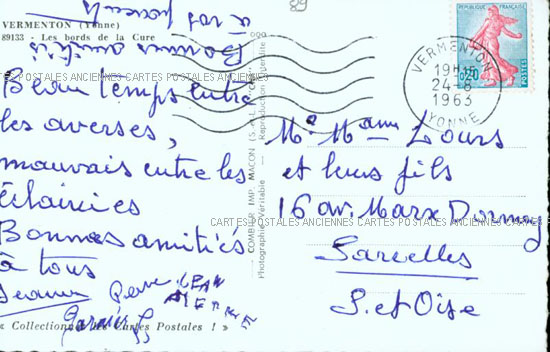 VERMENTON (Yonne)
89133 - Les bords de la Cure
89
à vos
Bonnes amitiés
Beau temps entre
les averses,
mauvais entre les
éclaircies
Bonnes amitiés
à tous
Jeanne Pierre JEAN
PIERRE
« Collectionnez les Cartes Postales ! »
COMBIER IMP. MACON
Photographie Véritable - Reproduction Interdite
RÉPUBLIQUE FRANÇAISE
0,20
POSTES
VERMENTON
19H15
24-8
1963
YONNE
Mr Mame Lours
et leurs fils
16 av. Marx Dormoy
Sarcelles
S. et Oise
CARTES POSTALES ANCIENNES CARTES POSTALES ANCIENNES CARTES POSTALES
CARTES POSTALES ANCIENNES CARTES POSTALES ANCIENNES